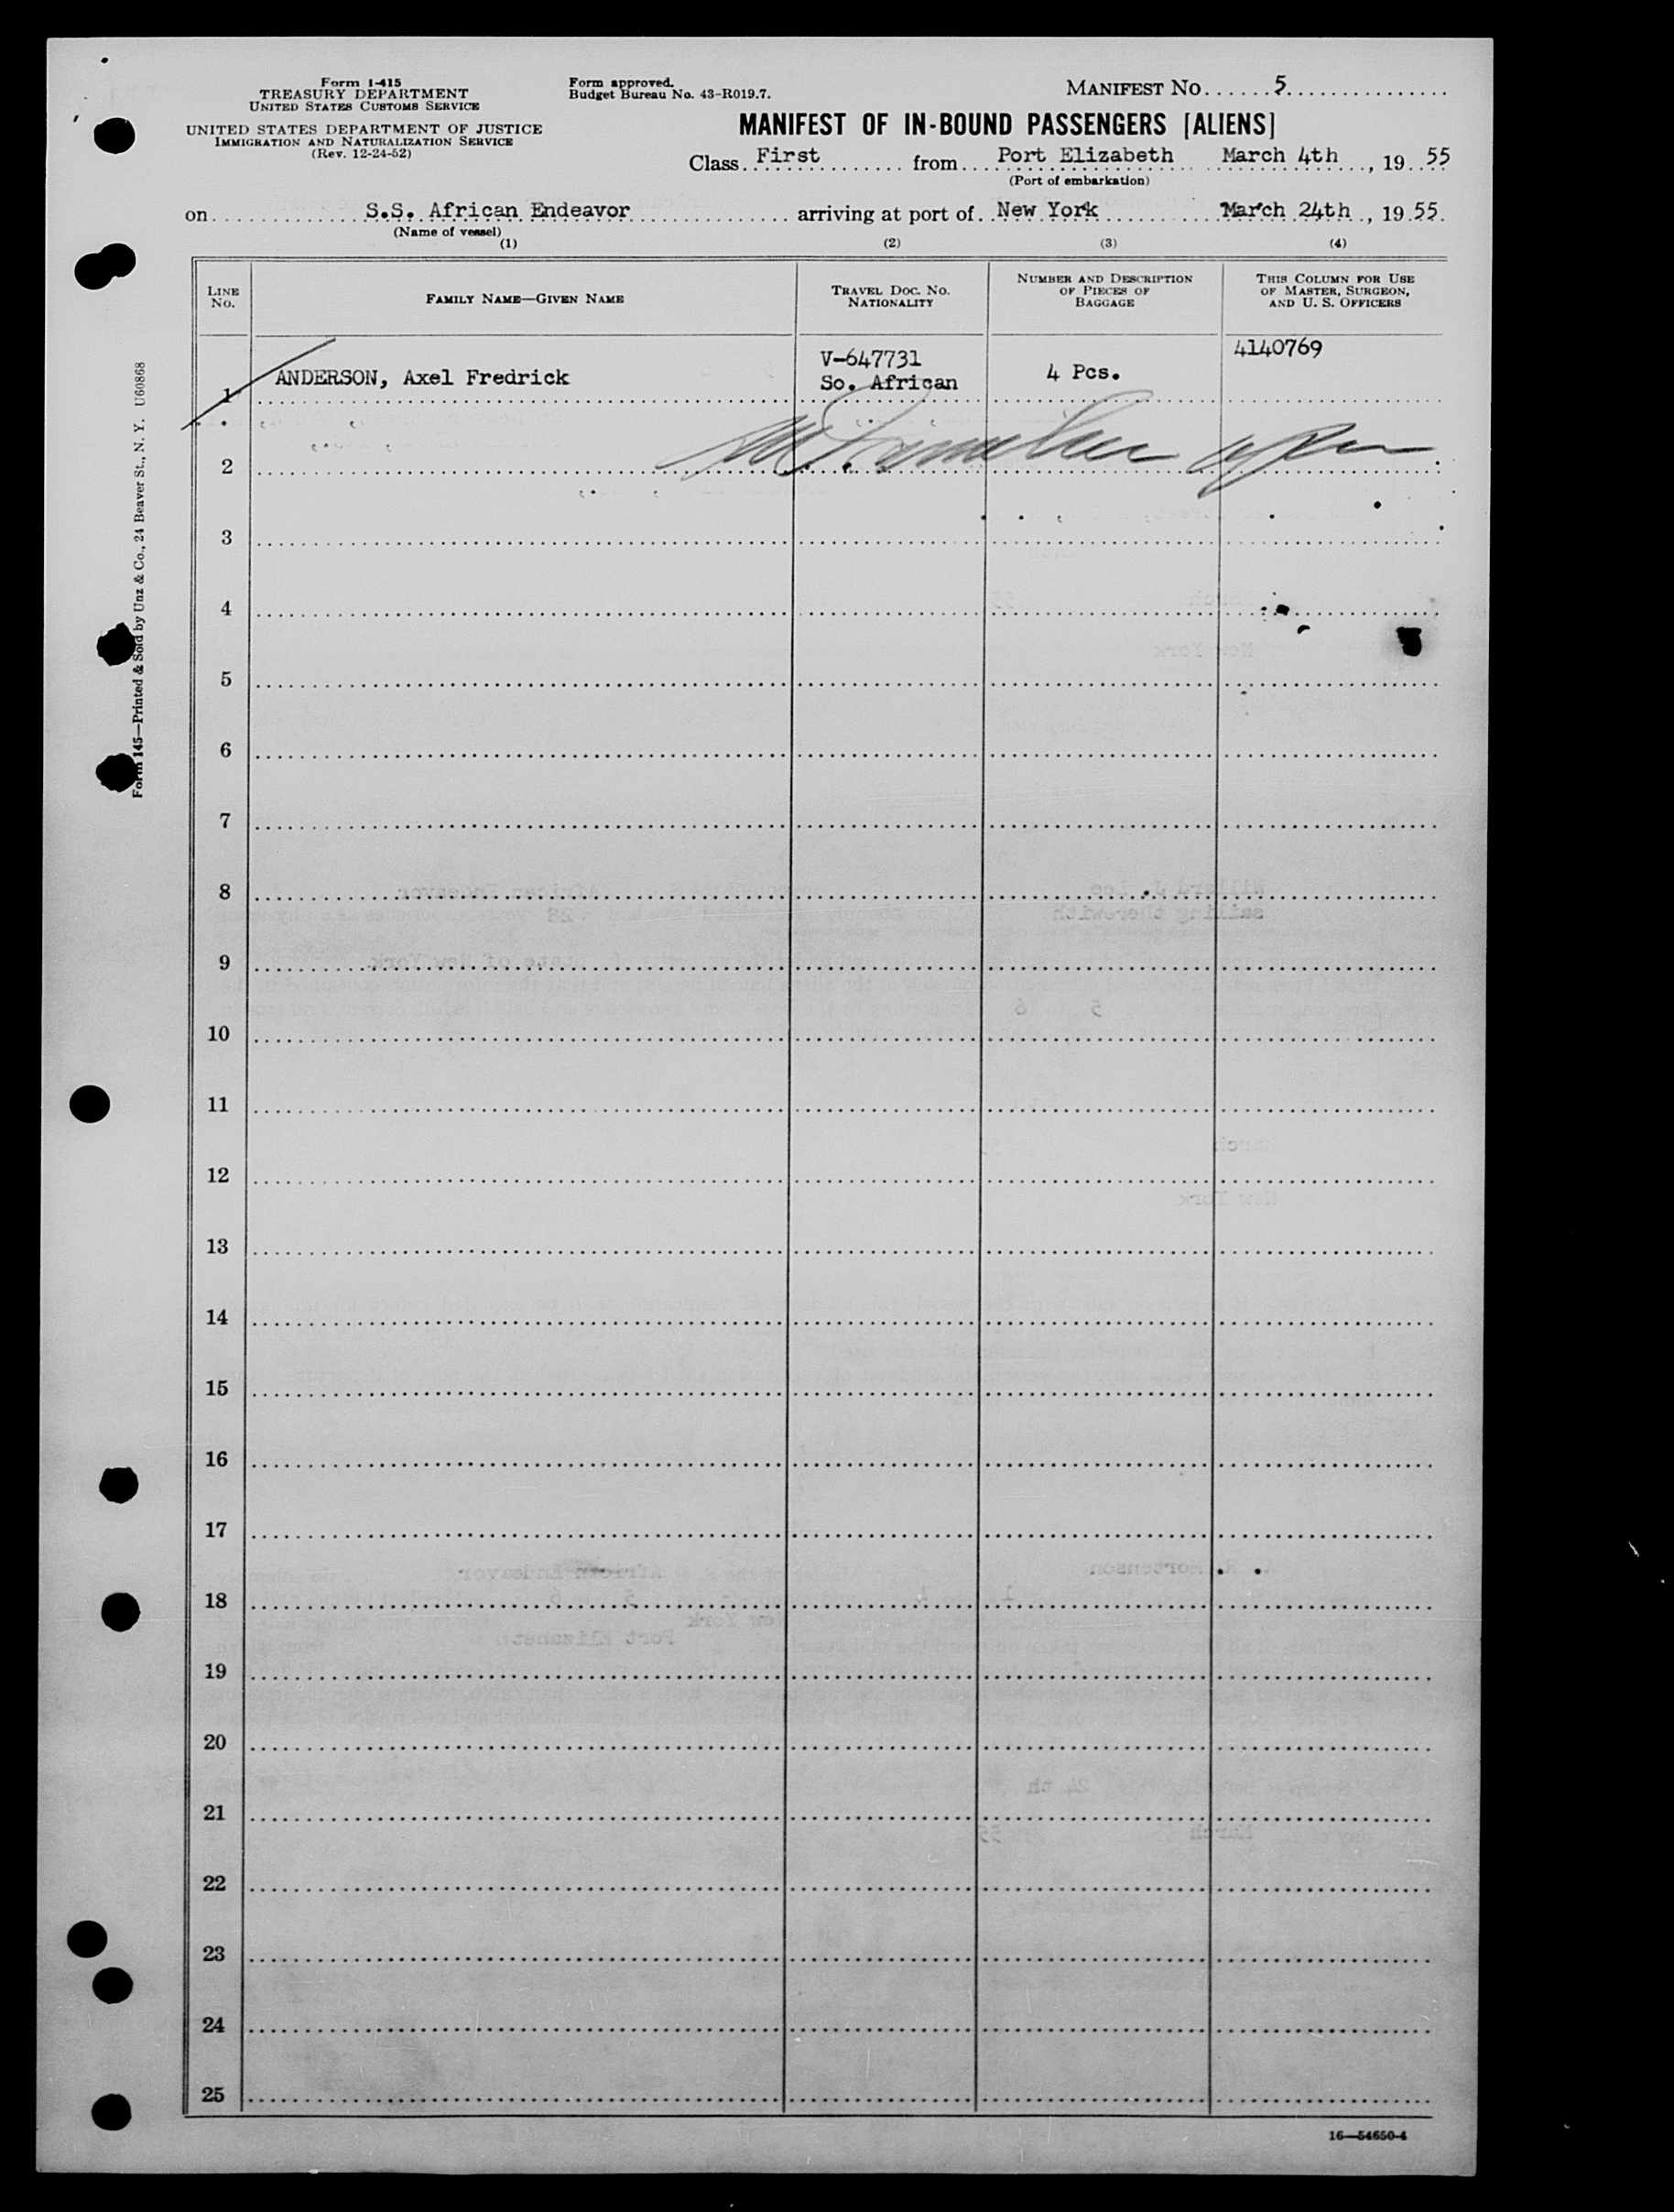 Form I-415
TREASURY DEPARTMENT
UNITED STATES CUSTOMS SERVICE
UNITED STATES DEPARTMENT OF JUSTICE
IMMIGRATION AND NATURALIZATION SERVICE
(Rev. 12-24-52)
Form approved.
Budget Bureau No. 43-R019.7.
MANIFEST NO. 5
MANIFEST OF IN-BOUND PASSENGERS [ALIENS]
Class First from Port Elizabeth March 4th, 19 55
(Port of embarkation)
on S.S. African Endeavor arriving at port of New York March 24th, 19 55.
(Name of vessel)
(1) (2) (3) (4)
LINE NO.
FAMILY NAME—GIVEN NAME
TRAVEL DOC. NO.
NATIONALITY
NUMBER AND DESCRIPTION
OF PIECES OF
BAGGAGE
THIS COLUMN FOR USE
OF MASTER, SURGEON,
AND U. S. OFFICERS
1 ANDERSON, Axel Fredrick
V-647731
So. African
4 Pcs.
4140769
2
3
4
5
6
7
8
9
10
11
12
13
14
15
16
17
18
19
20
21
22
23
24
25
Form 145—Printed & Sold by Unz & Co., 24 Beaver St., N. Y. U60868
16—54650-4